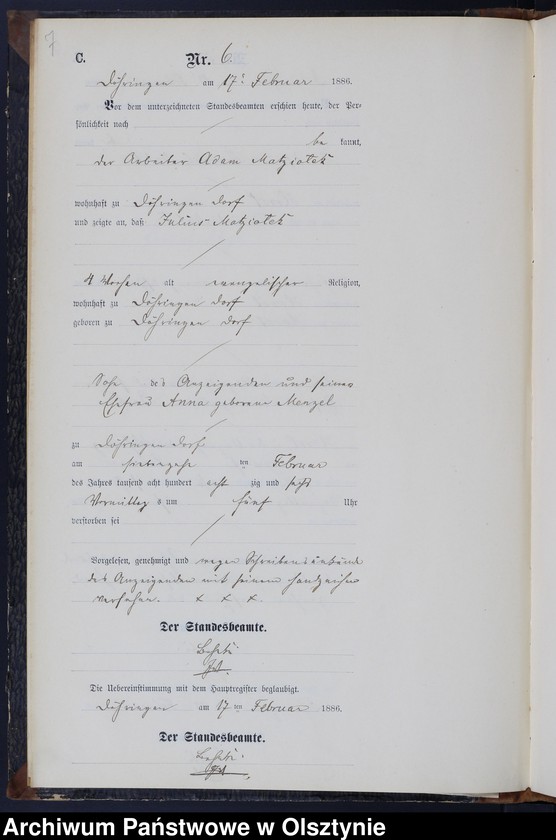 7
C. Nr. 6.
Döhringen am 17ten Februar 1886.
Vor dem unterzeichneten Standesbeamten erschien heute, der Per-
sönlichkeit nach
be kannt,
der Arbeiter Adam Matziotek
wohnhaft zu Döhringen Dorf
und zeigte an, daß Julius Matziotek
4 Wochen alt evangelischer Religion,
wohnhaft zu Döhringen Dorf
geboren zu Döhringen Dorf
Sohn des Anzeigenden und seiner
Ehefrau Anna geborene Menzel
zu Döhringen Dorf
am siebenzehn ten Februar
des Jahres tausend acht hundert acht zig und sechs
Vormittag s um fünf Uhr
verstorben sei
Vorgelesen, genehmigt und wegen Schreibensunkunde
des Anzeigenden mit seinem Handzeichen
versehen. x x x.
Der Standesbeamte.
Die Uebereinstimmung mit dem Hauptregister beglaubigt.
Döhringen am 17ten Februar 1886.
Der Standesbeamte.
Archiwum Państwowe w Olsztynie